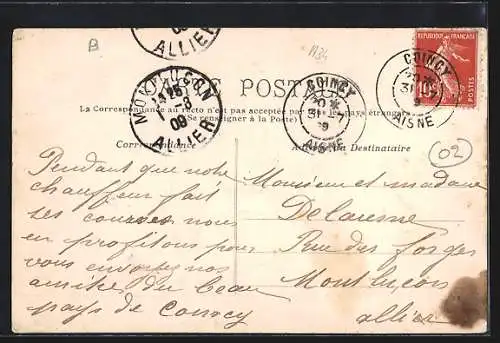 B
1134
ALLIER
MONTLUCON
1-8
09
ALLIER
CARTE POSTALE
La Correspondance au recto n'est pas acceptée par tous les pays étrangers
(Se renseigner à la Poste)
COINCY
20
31
9
AISNE
REPUBLIQUE FRANÇAISE
10
POSTES
COINCY
20
31
9
AISNE
02
Correspondance
Adresse du Destinataire
Pendant que notre
chauffeur fait
ses courses nous
en profitons pour
vous envoyer nos
amitiés du beau
pays de Coincy
Monsieur et madame
Delaresne
Rue des forges
Montluçon
allier